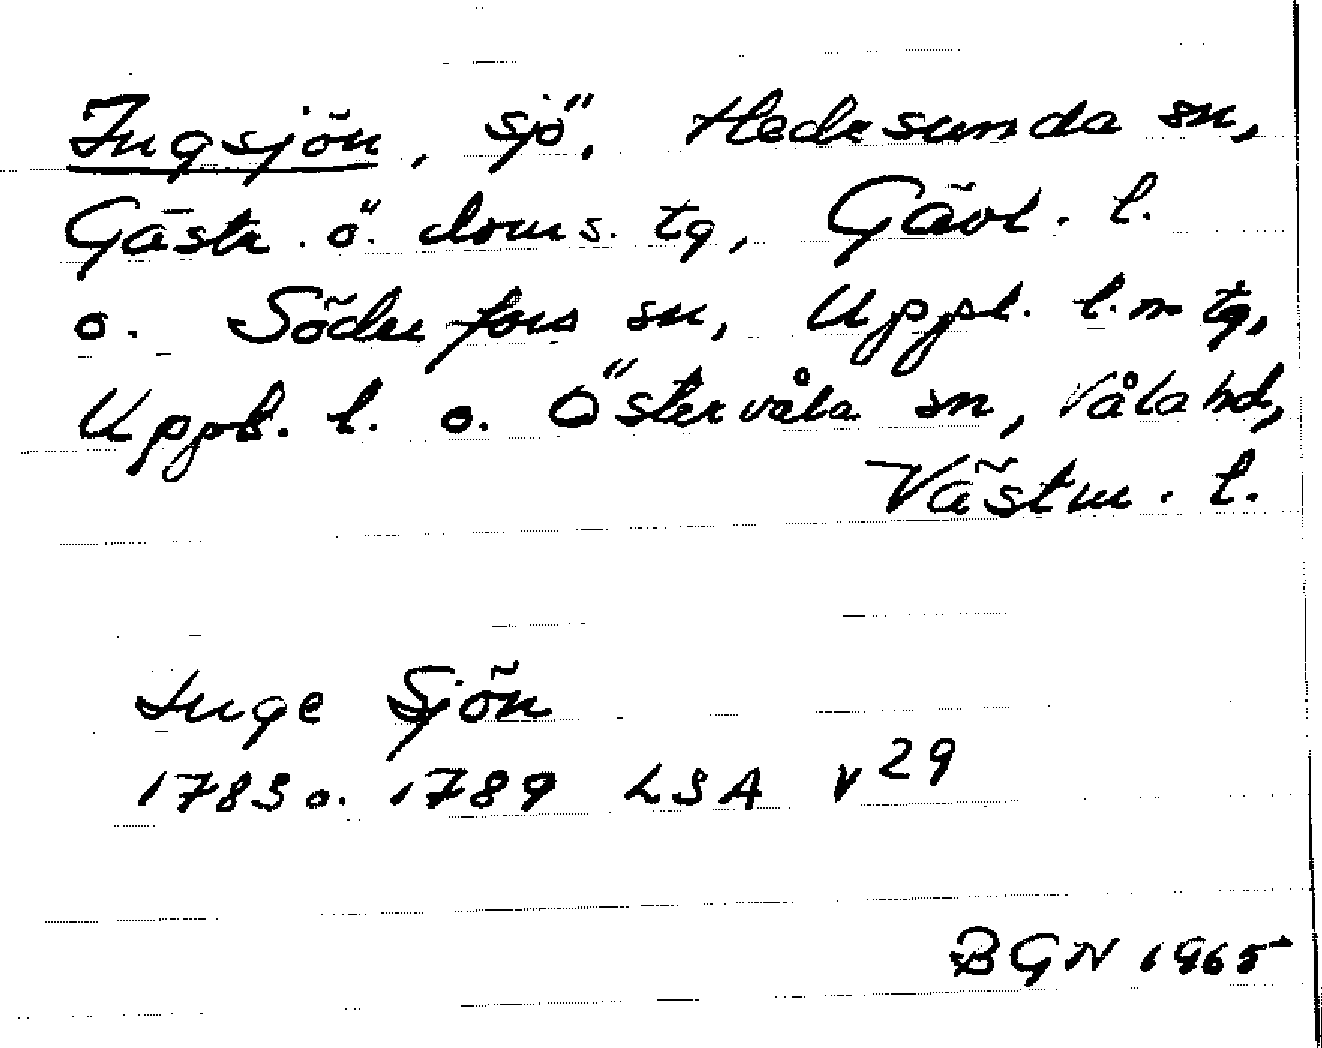 Ingsjön, sjö, Hedesunda sn,
Gästr. ö. doms. tg, Gävl. l.
o. Söderfors sn, Uppl. l. n tg,
Upps. l. o. Östervåla sn, Våla hd,
Västm. l.
Inge Sjön
1783 o. 1789 LSA V 29
BGN 1965